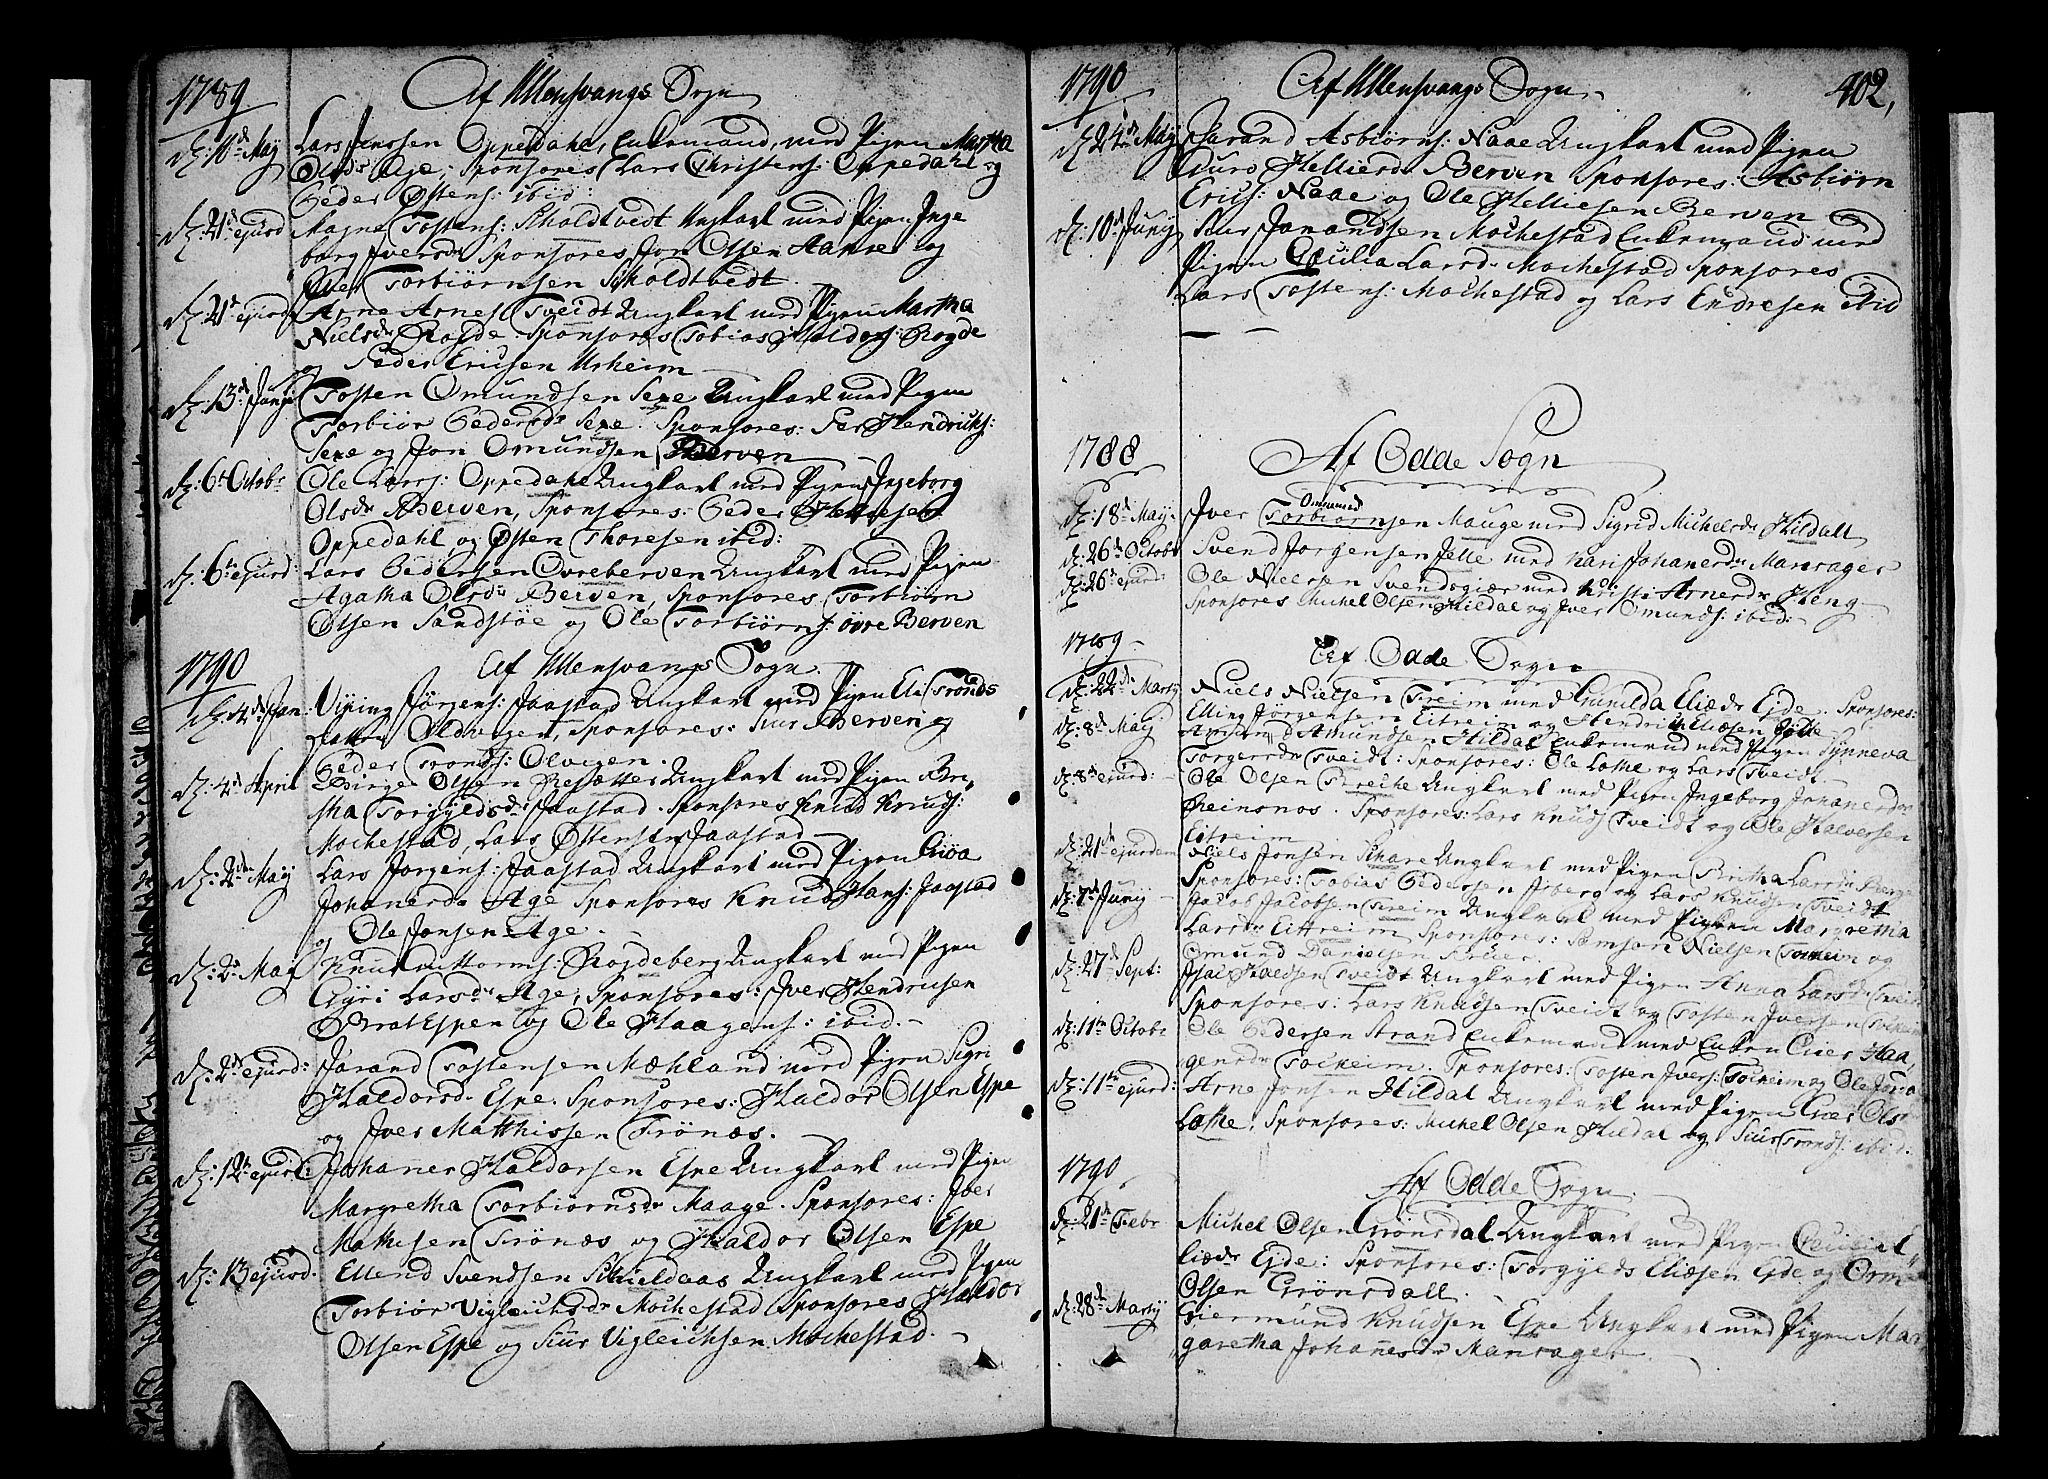 1789 Af Ullensvangs Sogn
d: 10de Maj Lars Jenssen Oppedahl, Enkemand, med Pigen Martha
Olsdr Age, Sponsores Lars Christens: Oppedahl og
Peder Østens: ibid:
d: 21de ejusd Magne Tostens: Skoldtvedt Ungkarl med Pigen Inge
borg Iversdr Sponsores Jon Olsen Aarre og
Iver Torbiørnsen Skoldtvedt.
d: 21de ejusd Arne Arnes: Tveidt Ungkarl med Pigen Martha
Nielsdr Rogde Sponsores Tobias Haldors: Rogde
og Peder Ericsen Urheim
d: 13de Junij Tosten Omundsen Sexe Ungkarl med Pigen
Torbiør Pedersdr Sexe. Sponsores: Per Hendrichs:
Sexe og Jon Omundsen Berven
d: 6te Octobr Ole Larss: Oppedahl Ungkarl med Pigen Ingeborg
Olsdr Berven, Sponsores: Peder Helliesen
Oppedahl og Østen Thoresen ibid:
d: 6te ejusd: Lars Pedersen Øvreberven Ungkarl med Pigen
Agatha Olsdr Berven, Sponsores Torbiørn
Olsen Sandstøe og Ole Torbiørns: øvre Berven
1790 Af Ullensvangs Sogn
d: 4de Jan: Viking Jørgens: Jaastad Ungkarl med Pigen Eli Tronds
datter Oldvigen, Sponsores: Siur Berven og
Peder Tronds: Olvigen.
d: 4de April Birge Olsen Ungkarl med Pigen Bri
tha Torgyldsdr Jaastad. Sponsores Knud Knuds:
Mochestad, Lars Østensen Jaastad
d: 2de Maij Lars Jorgens: Jaastad Ungkarl med Pigen Giøa
Johanesdr Age Sponsores Knud Hans: Jaastad
og Ole Jonsen Age.
d: 2de Maij Knud Rogdeberg Ungkarl med Pigen
Gyri Larsdr Age, Sponsores: Iver Hendricsen
Bratespen og Ole Haagens: ibid.
d: 2de ejusd: Jarand Tostensen Mæhland med Pigen Sigri
Haldorsd: Espe. Sponsores: Haldor Olsen Espe
og Iver Matthissen Trönæs.
d: 12te ejusd: Johanes Haldorsen Espe Ungkarl med Pigen
Margretha Torbiørnsdr Maage. Sponsores: Iver
Mathisen Trönæs og Haldor Olsen Espe
d: 13 ejusd. Ellend Svendsen Skieldaas Ungkarl med Pigen
Torbiør Vigleichsdr Mochestad Sponsores Haldor
Olsen Espe og Siur Vigleichsen Mochestad.
1790 Af Ullensvangs Sogn 402,
d: 24de Maij Jarand Asbiørns: Naae Ungkarl med Pigen
Gurø Helliesdr Berven Sponsores: Asbiørn
Erics: Naae og Ole Helliesen Berven
d: 10de Junij Siur Jarandsen Mochestad Enkemand med
Pigen Cecilia Larsdr Mochestad Sponsores
Lars Tostens: Mochestad og Lars Endresen ibid
1788 Af Odde Sogn
d: 18de Maij Iver Torbiørnsen Omund Mauge med Sigrid Michelsdr Hildall
d: 26de Octobr Svend Jorgensen Jelle med Kari Johanesdr Manrager
d: 26de ejusd: Ole Nielsen Svendsgiær med Kristi Arnesdr Heng
Sponsores Michel Olsen Hildal og Iver Omunds: ibid:
1789 Af Odde Sogn
d: 22de Martij Niels Nielsen Freim med Gunilda Eliædr Eide. Sponsores:
Elling Jørgensen Eitreim og Hendrich Eliæsen Jelle
d: 8de Maij Amund Amundsen Hildal Enkemand med Pigen Synneva
Torgersdr Tveidt: Sponsores: Ole Lothe og Lars Tveidt
d: 8de ejusd: Ole Olsen Breche Ungkarl med Pigen Ingeborg Johanesdr
Reinsnos. Sponsores: Lars Knuds: Tveidt og Ole Halversen
Eitreim
d: 21de ejusdem Niels Jonsen Skare Ungkarl med Pigen Britha Larsdr
Sponsores: Tobias Pedersen Isberg og Lars Knudsen Tveidt
d: 7de Junij Jacob Jacobsen Freim Ungkarl med Pigen Margretha
Larsdr Eittreim Sponsores: Samson Nielsen Tocheim og
Omund Danielsen
d: 27de Sept: Isac Tveidt Ungkarl med Pigen Anna Larsdr
Sponsores: Lars Knudsen Tveidt og Tosten Iversen Tocheim
d: 11te Octobr Ole Pedersen Strand Enkemand med Enken Haa
gensdr Tocheim. Sponsores: Tosten Ivers: Tocheim og Ole
d: 11te ejusd: Arne Jonsen Hildal Ungkarl med Pigen Olsdr
Lothe. Sponsores: Michel Olsen Hildal og Siur Tronds: ibid.
1790 Af Odde Sogn
d: 21de Febr Michel Olsen Grönsdal Ungkarl med Pigen Cecilia
liædr Eide: Sponsores: Torgylds Eliæsen Eide og Orm
Olsen Grönsdall.
d: 28de Martij Giermund Knudsen Espe Ungkarl med Pigen Mar
garetha Johanesdr Manrager